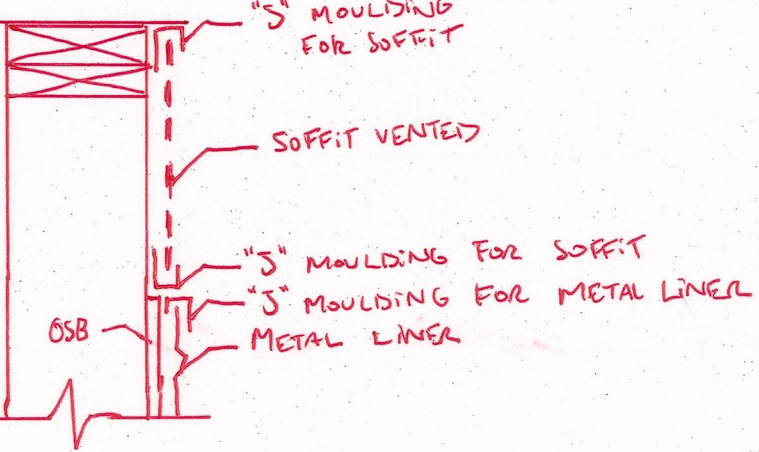 "J" MOULDING
FOR SOFFIT
SOFFIT VENTED
"J" MOULDING FOR SOFFIT
"J" MOULDING FOR METAL LINER
OSB
METAL LINER